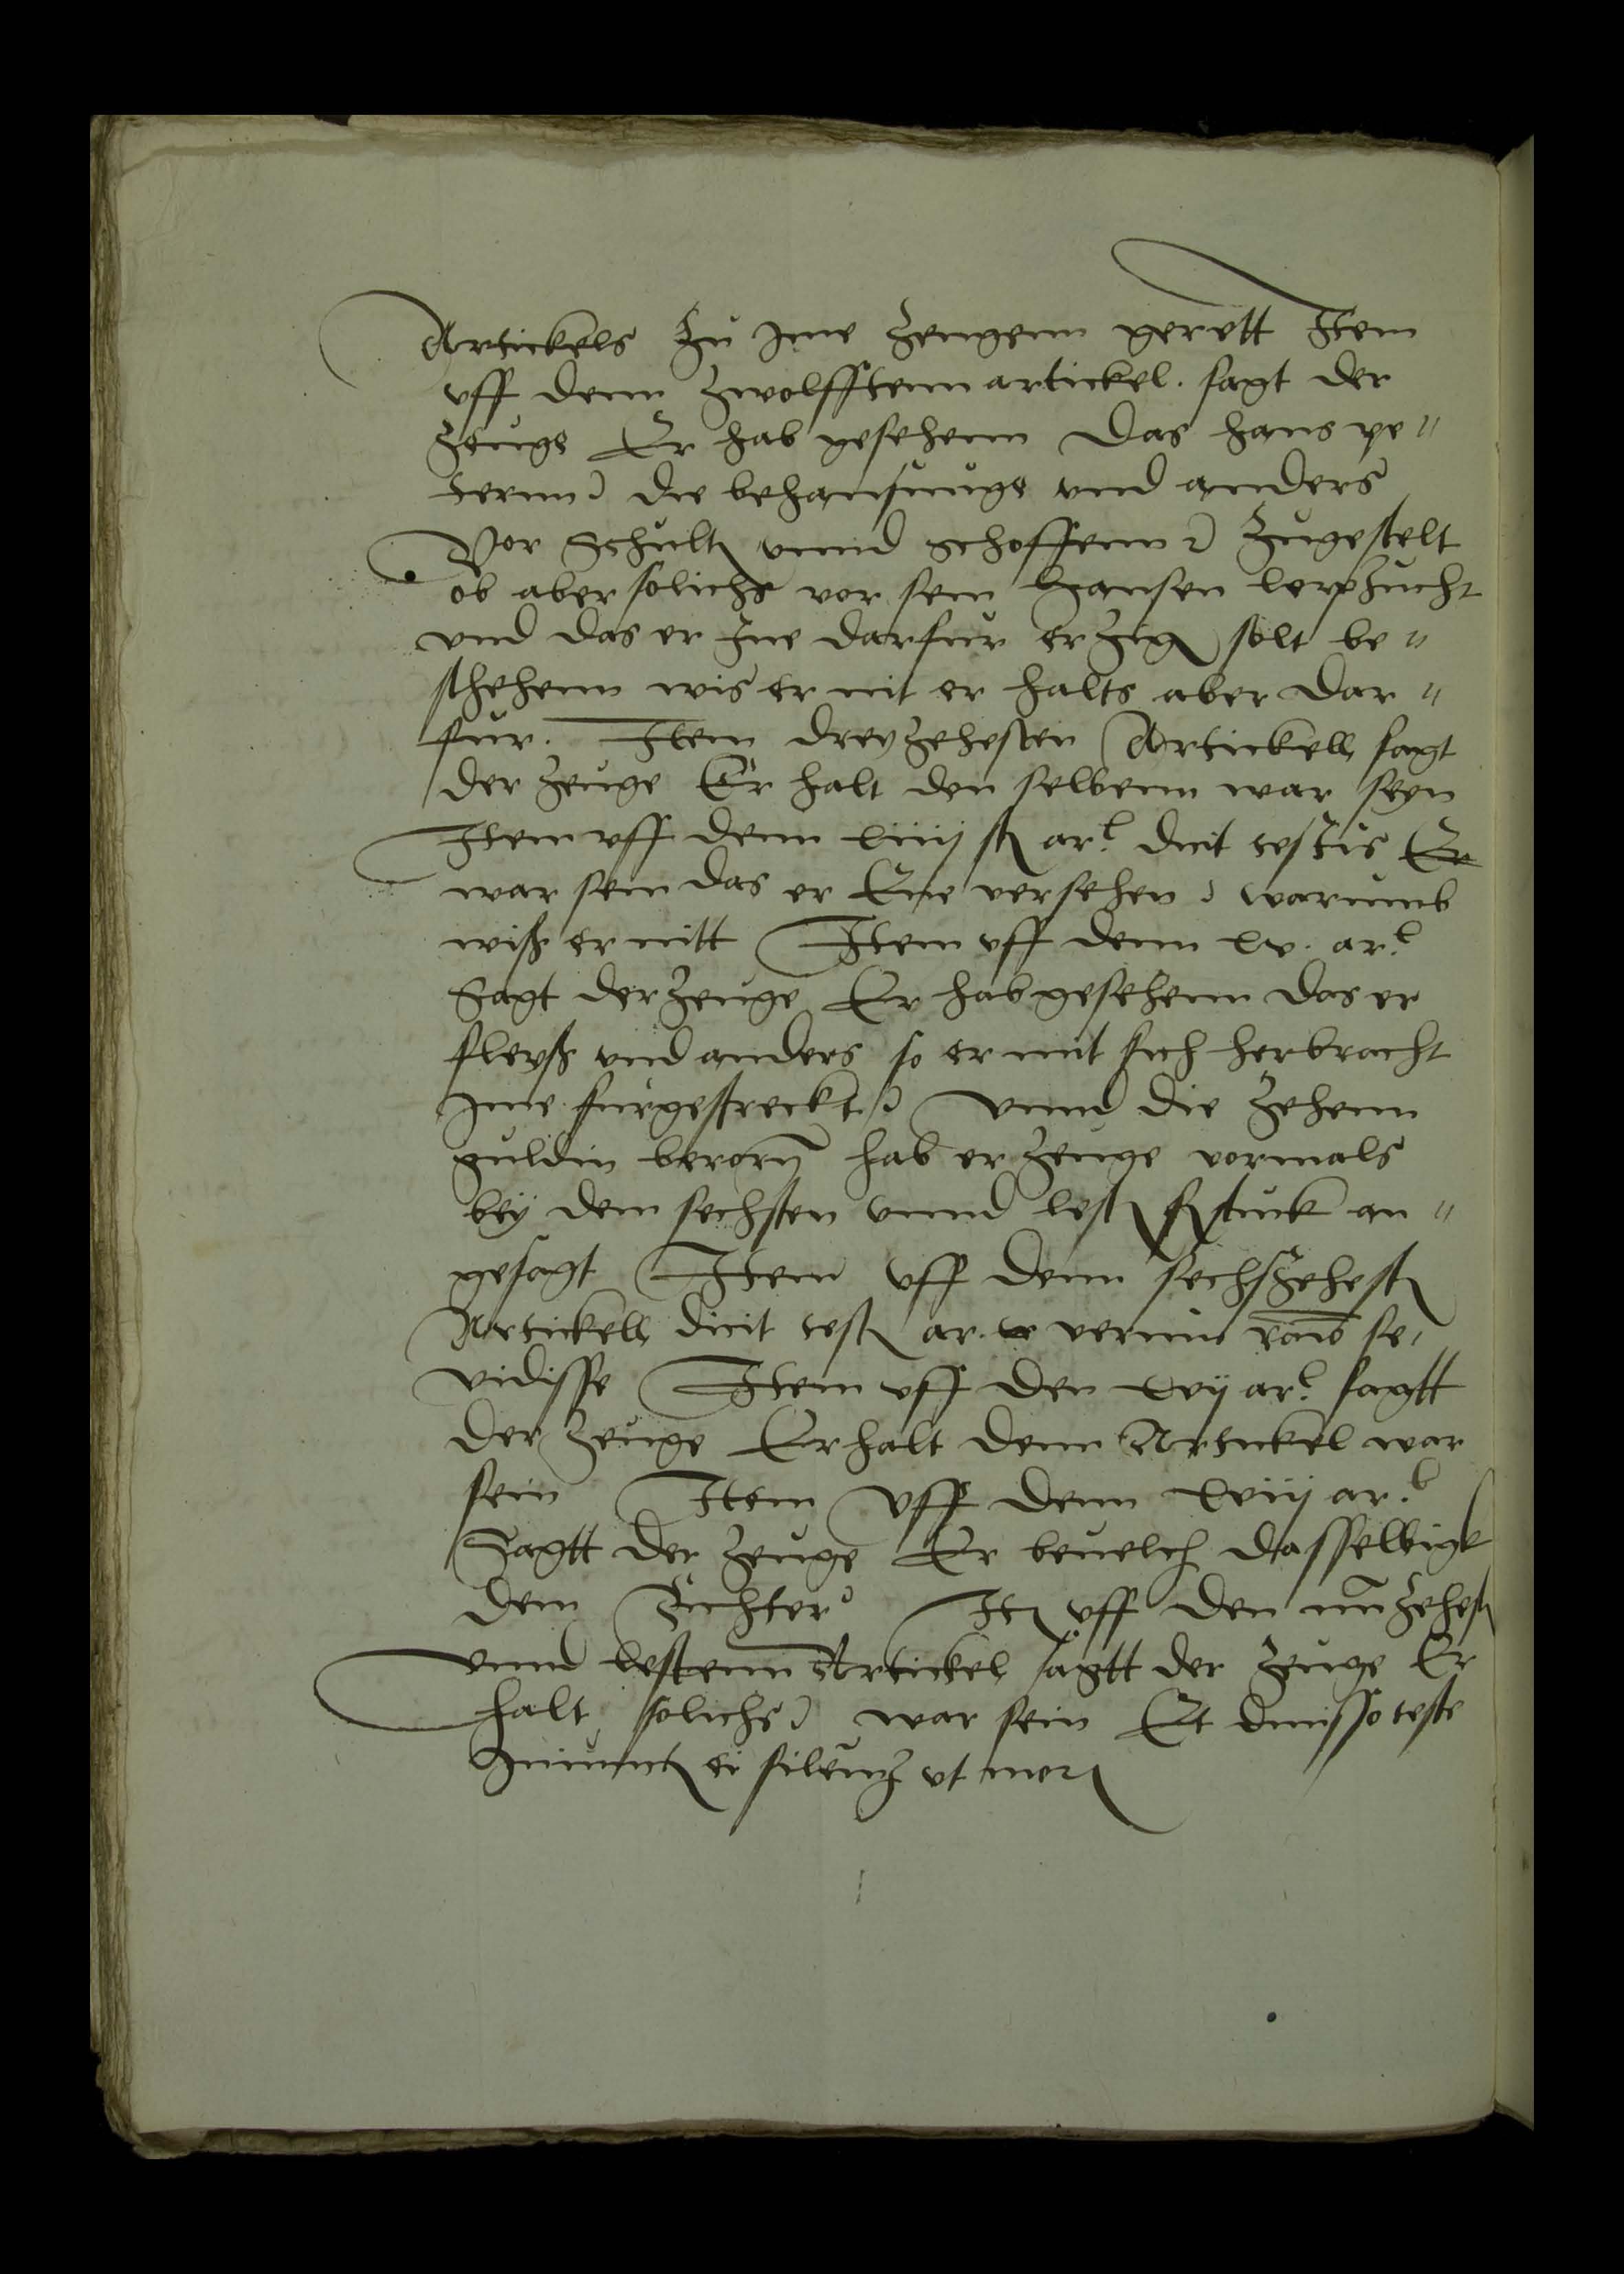 Artickels Zu Jme Zeugenn gerett Item
vff denn Zwolfftenn artickel. sagt der
Zeuge Er hab gesehenn Das Hans pe"
term die behausunge vnd anders
Vor Schult vnnd Schoffenn Zugestelt
ob aber solichs vor sein Hansen leipzucht
vnd das er Jne darfur erzig solt be"
schehenn wis er nit er halts aber dar"
fur. Item dreyzehesten Artickell sagt
der Zeuge Er halt den selbenn war seyn
Item vff denn xiiij st arl dicit testis Er
war sein das er Ene versehen warumb
wiß er nitt Item vff denn xv. arl
Sagt der Zeuge Er hab gesehenn das er
fleyß vnd anders so er mit sich herbracht
Jme furgestreckt vnnd die Zehenn
guldin hab er Zeuge vormals
bey dem sechsten vnnd lest stuck an"
gesagt Item vff denn sechszehest
Artickell dicit test ar. verum se
vidisse Item vff den xvij arl sagtt
der Zeuge Er halt denn Artickel war
sein Item vff denn xviij arl
Sagtt der Zeuge Er beuelch dasselbige
dem Richter It vff den nunzehest
vnnd lestenn Artickel sagtt der Zeuge Er
halt solichs war sein Et dimisso teste
Iniunct ei silenz vt mor